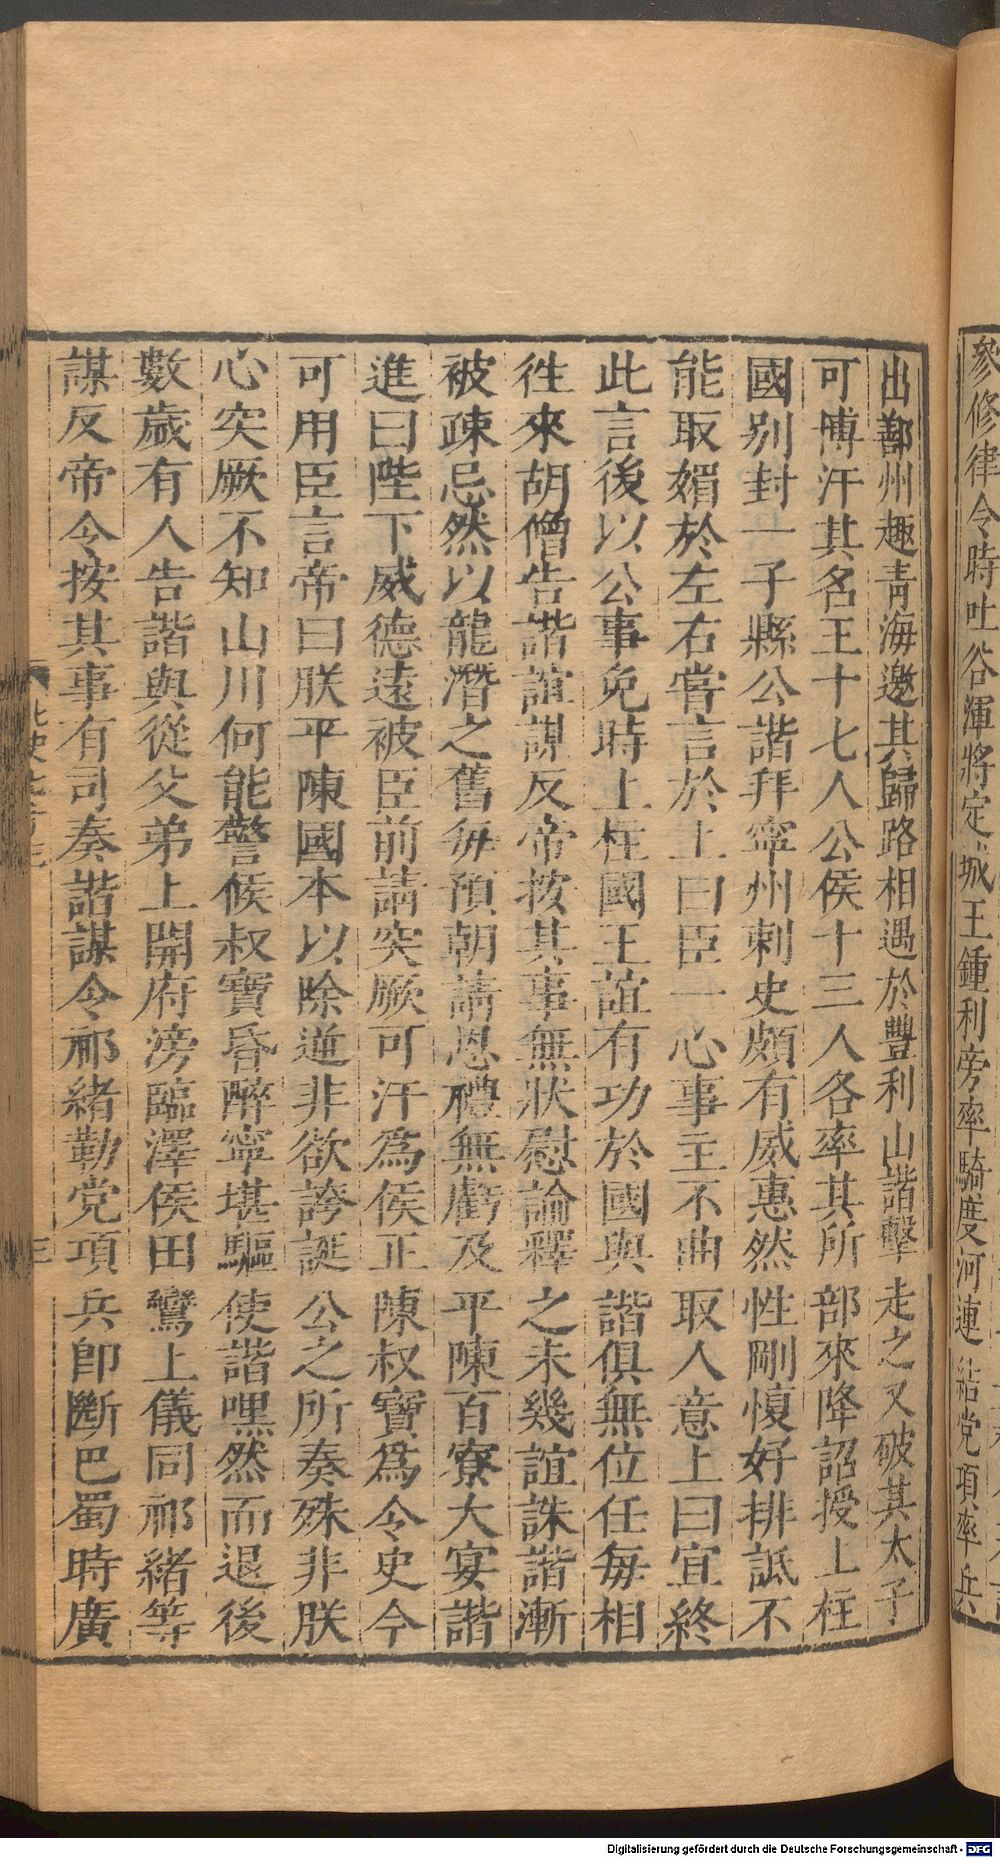 參修律令時吐谷渾將定城王鍾利旁率騎度河連結党項率兵
出鄯州趣靑海邀其歸路相遇於豐利山諧擊走之又破其太子
可博汗其名王十七人公侯十三人各率其所部來降詔授上柱
國别封一子縣公諧拜寧州刺史頗有威惠然性剛愎好排詆不
能取媚於左右嘗言於上曰臣一心事主不曲取人意上曰宜終
此言後以公事免時上柱國王誼有功於國與諧俱無位任每相
徃來胡僧告諧誼謀反帝按其事無狀慰諭釋之未幾誼誅諧漸
被疎忌然以龍潛之舊每預朝請恩禮無虧及平陳百寮大宴諧
進曰陛下威德遠被臣前請突厥可汗爲侯正陳叔寶爲令史今
可用臣言帝曰朕平陳國本以除逆非欲誇誕公之所奏殊非朕
心突厥不知山川何能警候叔寶昏醉寧堪驅使諧嘿然而退後
數歲有人告諧與從父弟上開府滂臨澤侯田鸞上儀同祁緒等
謀反帝令按其事有司奏諧謀令祁緒勒党項兵卽斷巴蜀時廣
Digitalisierung gefördert durch die Deutsche Forschungsgemeinschaft - DFG